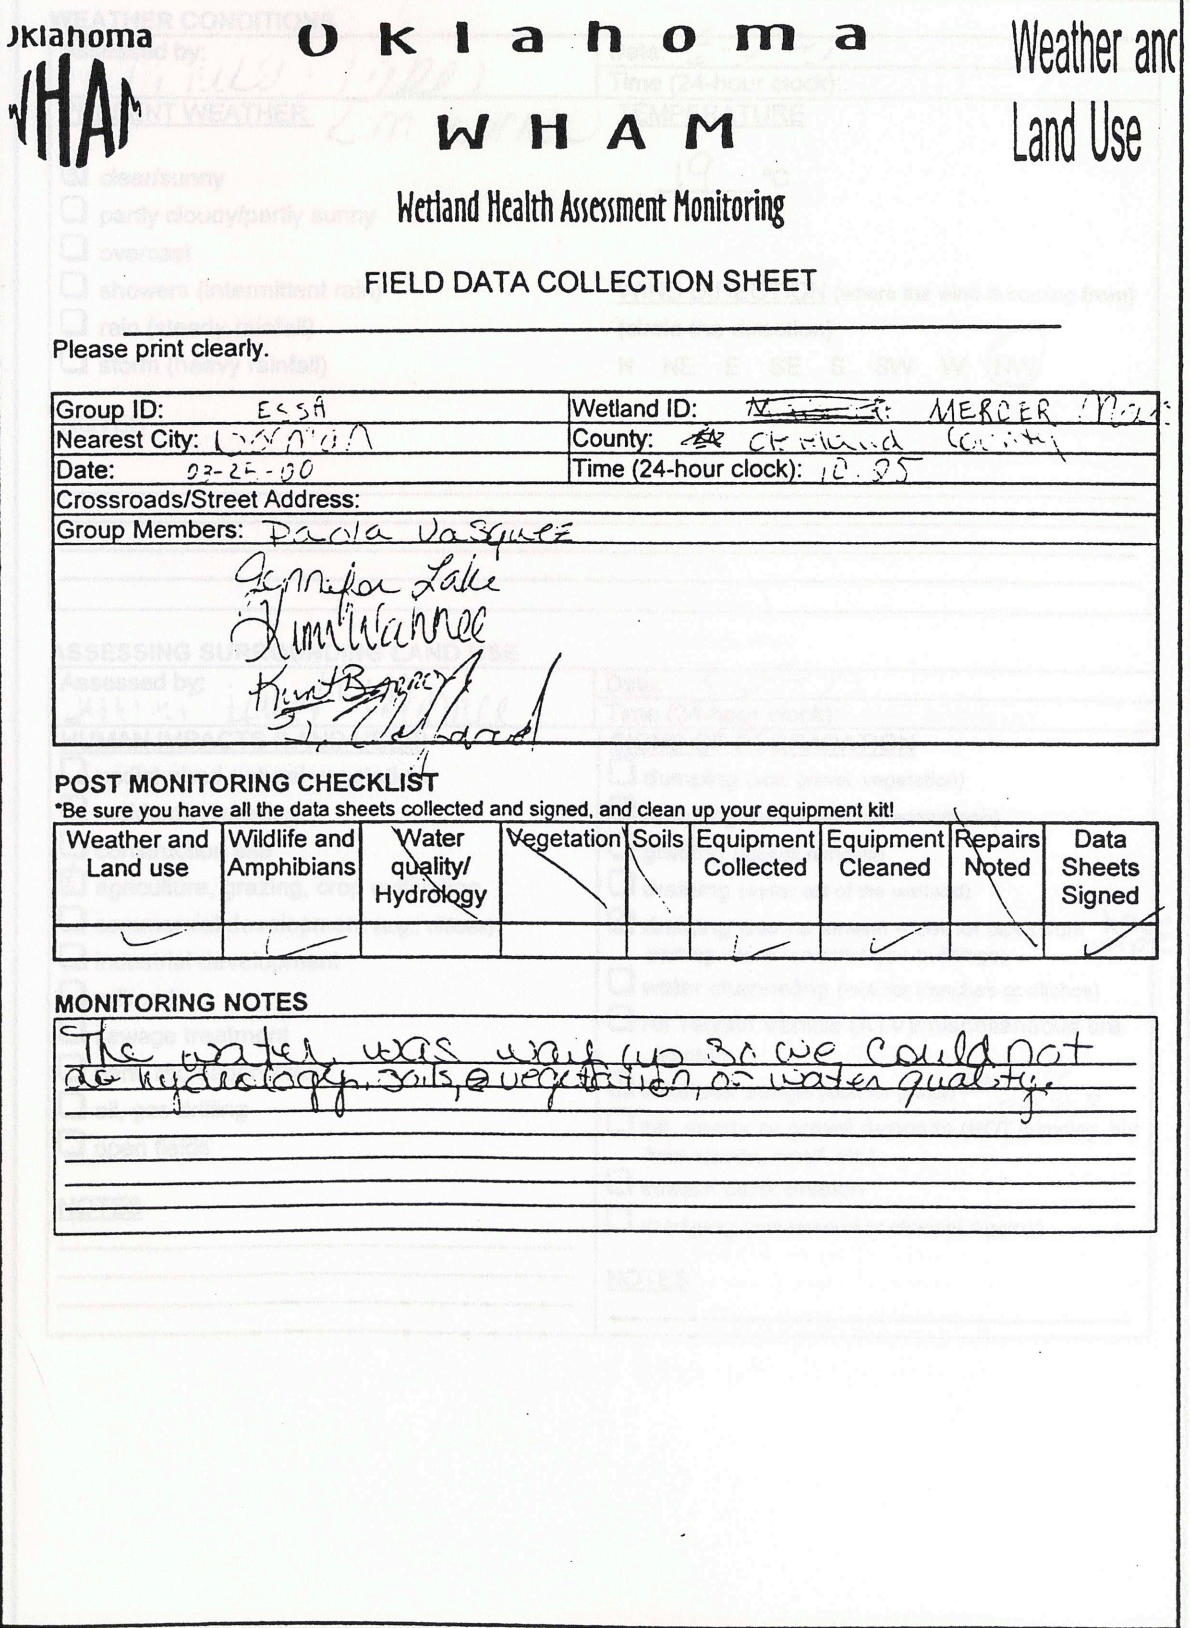 Oklahoma
WHAM
Oklahoma
WHAM
Weather and
Land Use
Wetland Health Assessment Monitoring
FIELD DATA COLLECTION SHEET
Please print clearly.
Group ID: ESSA Wetland ID: MERCER
Nearest City: County: County
Date: 03-25-00 Time (24-hour clock):
Crossroads/Street Address:
Group Members: Paola Vasquez
Jennifer Lake
Kim Wannee
POST MONITORING CHECKLIST
*Be sure you have all the data sheets collected and signed, and clean up your equipment kit!
Weather and Wildlife and Water Vegetation Soils Equipment Equipment Repairs Data
Land use Amphibians quality/ Collected Cleaned Noted Sheets
Hydrology Signed
MONITORING NOTES
The water was way up so we could not
do hydrology, soils, vegetation, or water quality.